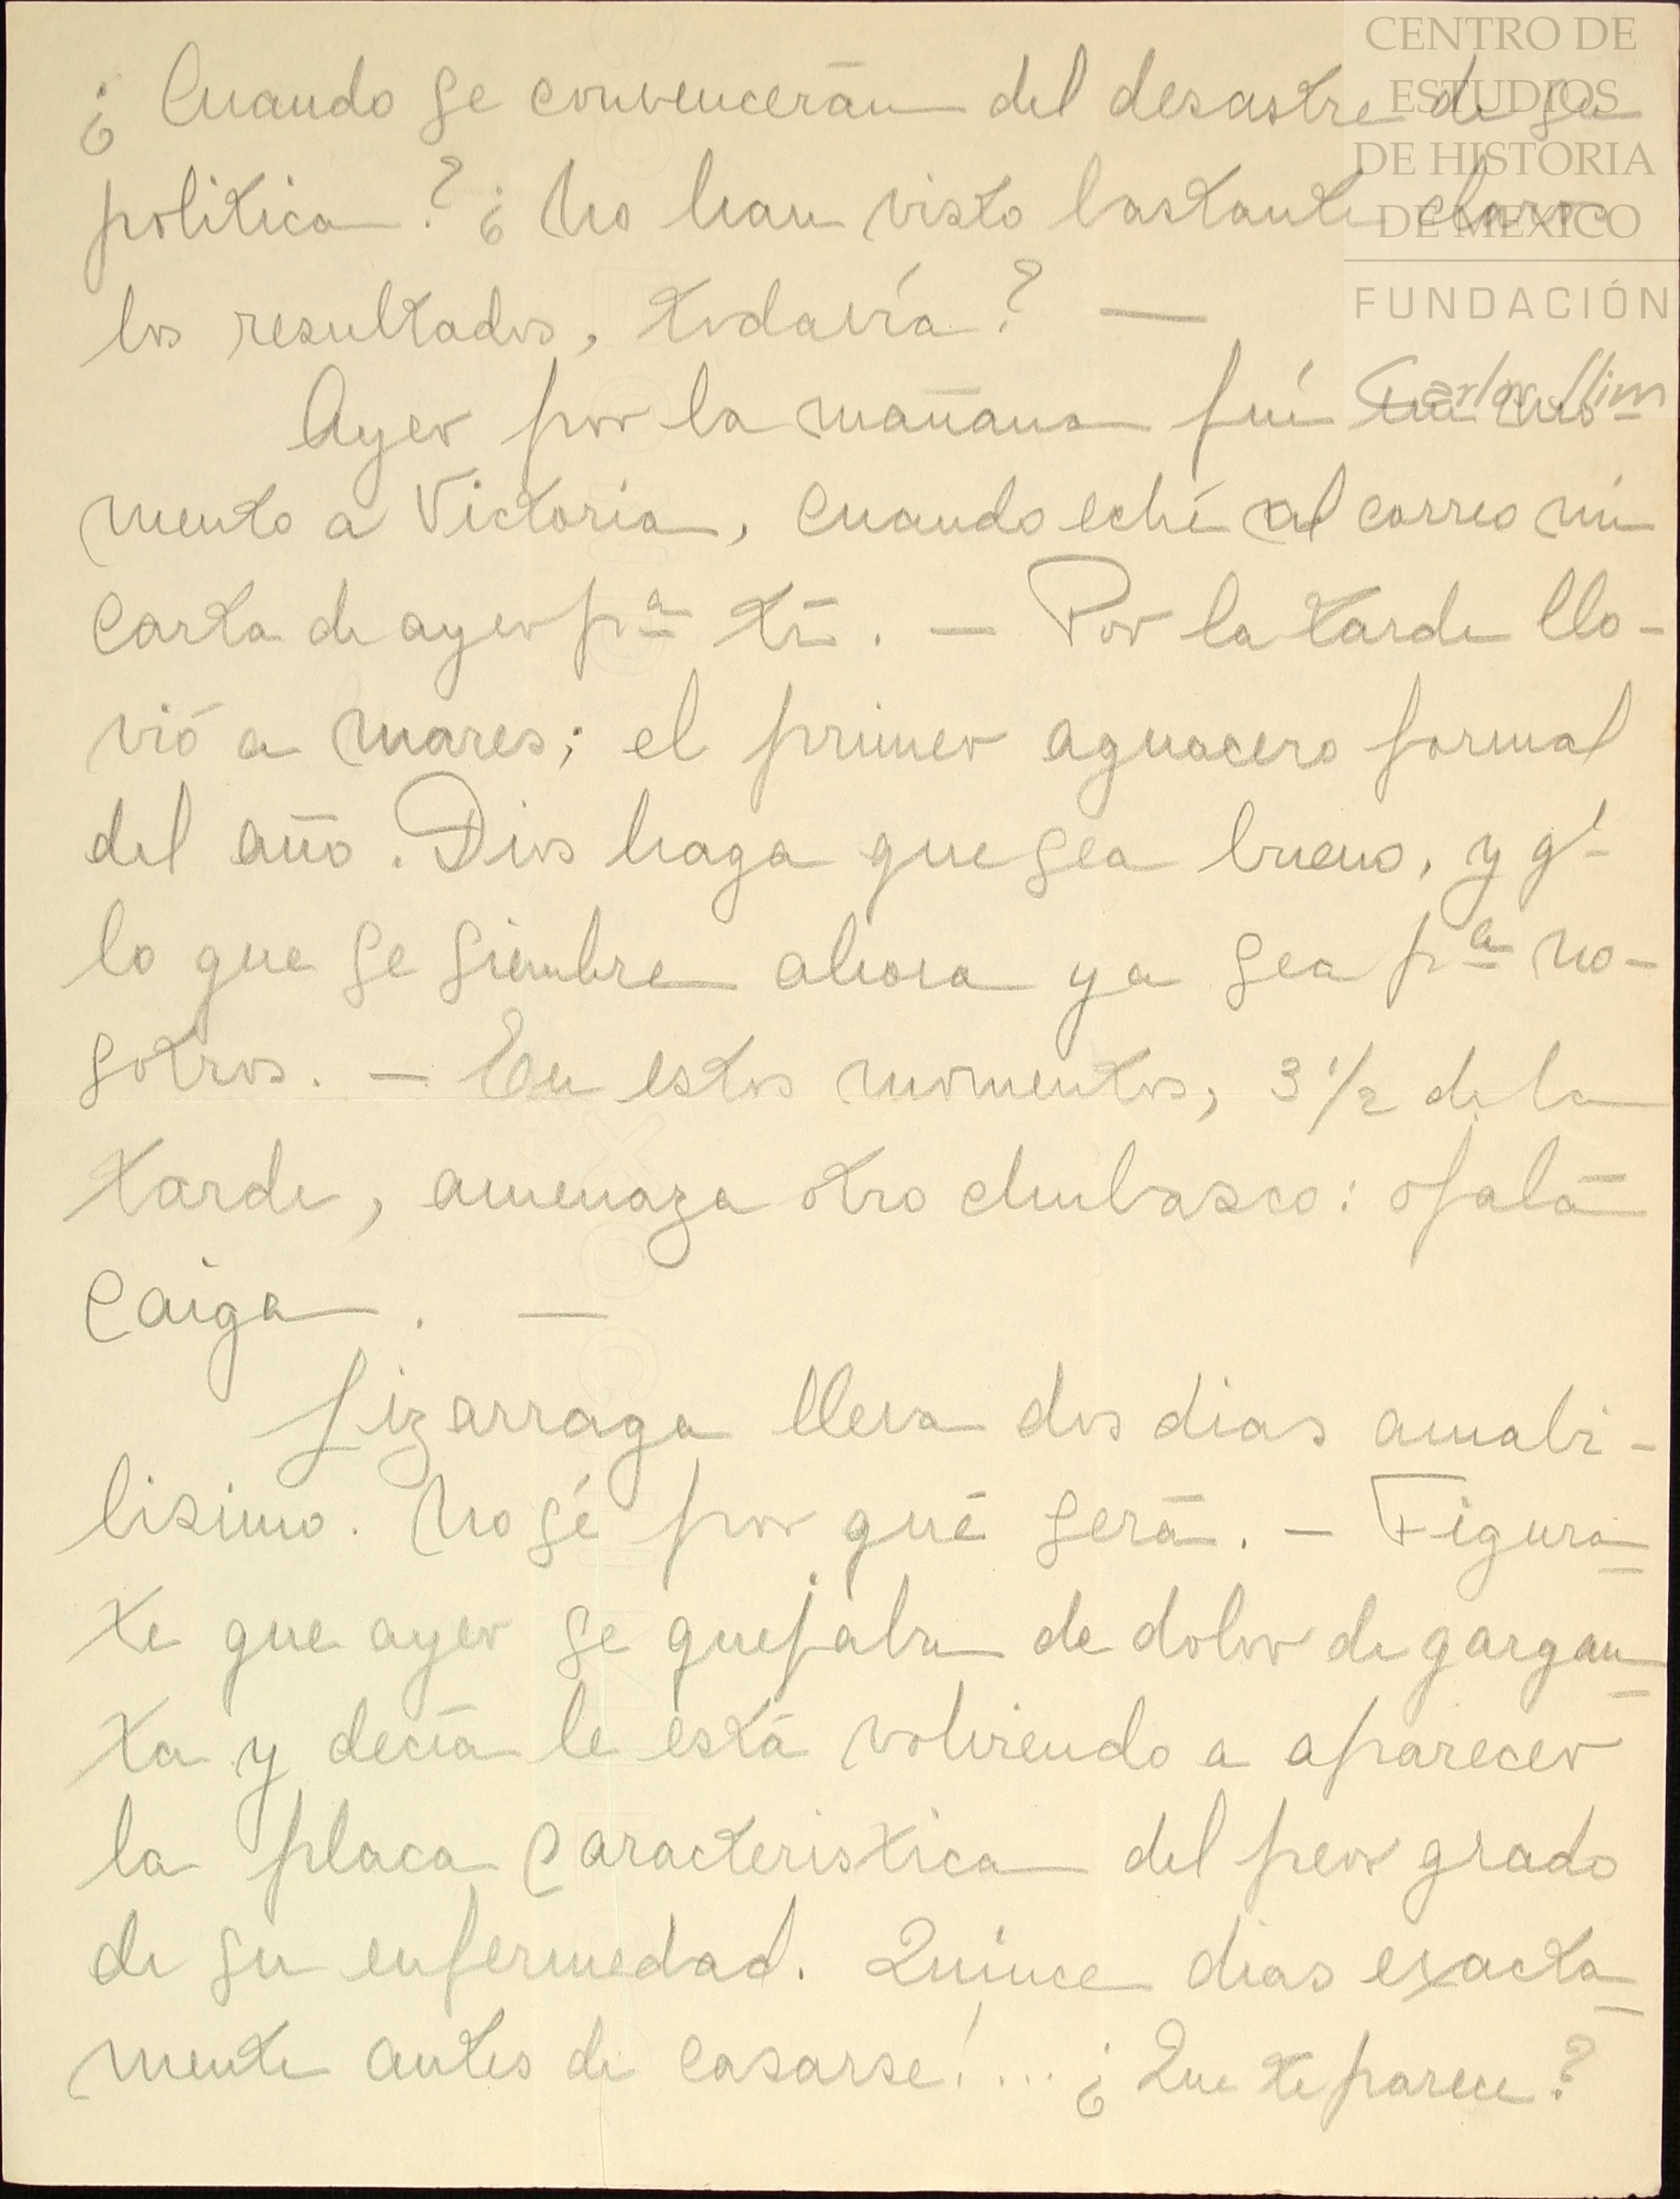 ¿Cuando se convencerán del desastre de su
politica? ¿No han visto bastante claros
los resultados, todavía? —
Ayer por la mañana fuí un mo-
mento a Victoria, cuando eché al correo mi
carta de ayer pª tí. — Por la tarde llo-
vió a mares; el primer aguacero formal
del año. Dios haga que sea bueno, y q'
lo que se siembre ahora ya sea pª no-
sotros. — En estos momentos, 3 1/2 de la
tarde, amenaza otro chubasco: ojalá
caiga. —
Lizarraga lleva dos dias amabi-
lisimo. No sé por qué será. — Figura-
te que ayer se quejaba de dolor de gargan-
ta y decía le está volviendo a aparecer
la placa caracteristica del peor grado
de su enfermedad. Quince dias exacta-
mente antes de casarse!... ¿Que te parece?
CENTRO DE
ESTUDIOS
DE HISTORIA
DE MEXICO
FUNDACIÓN
Carlos Slim